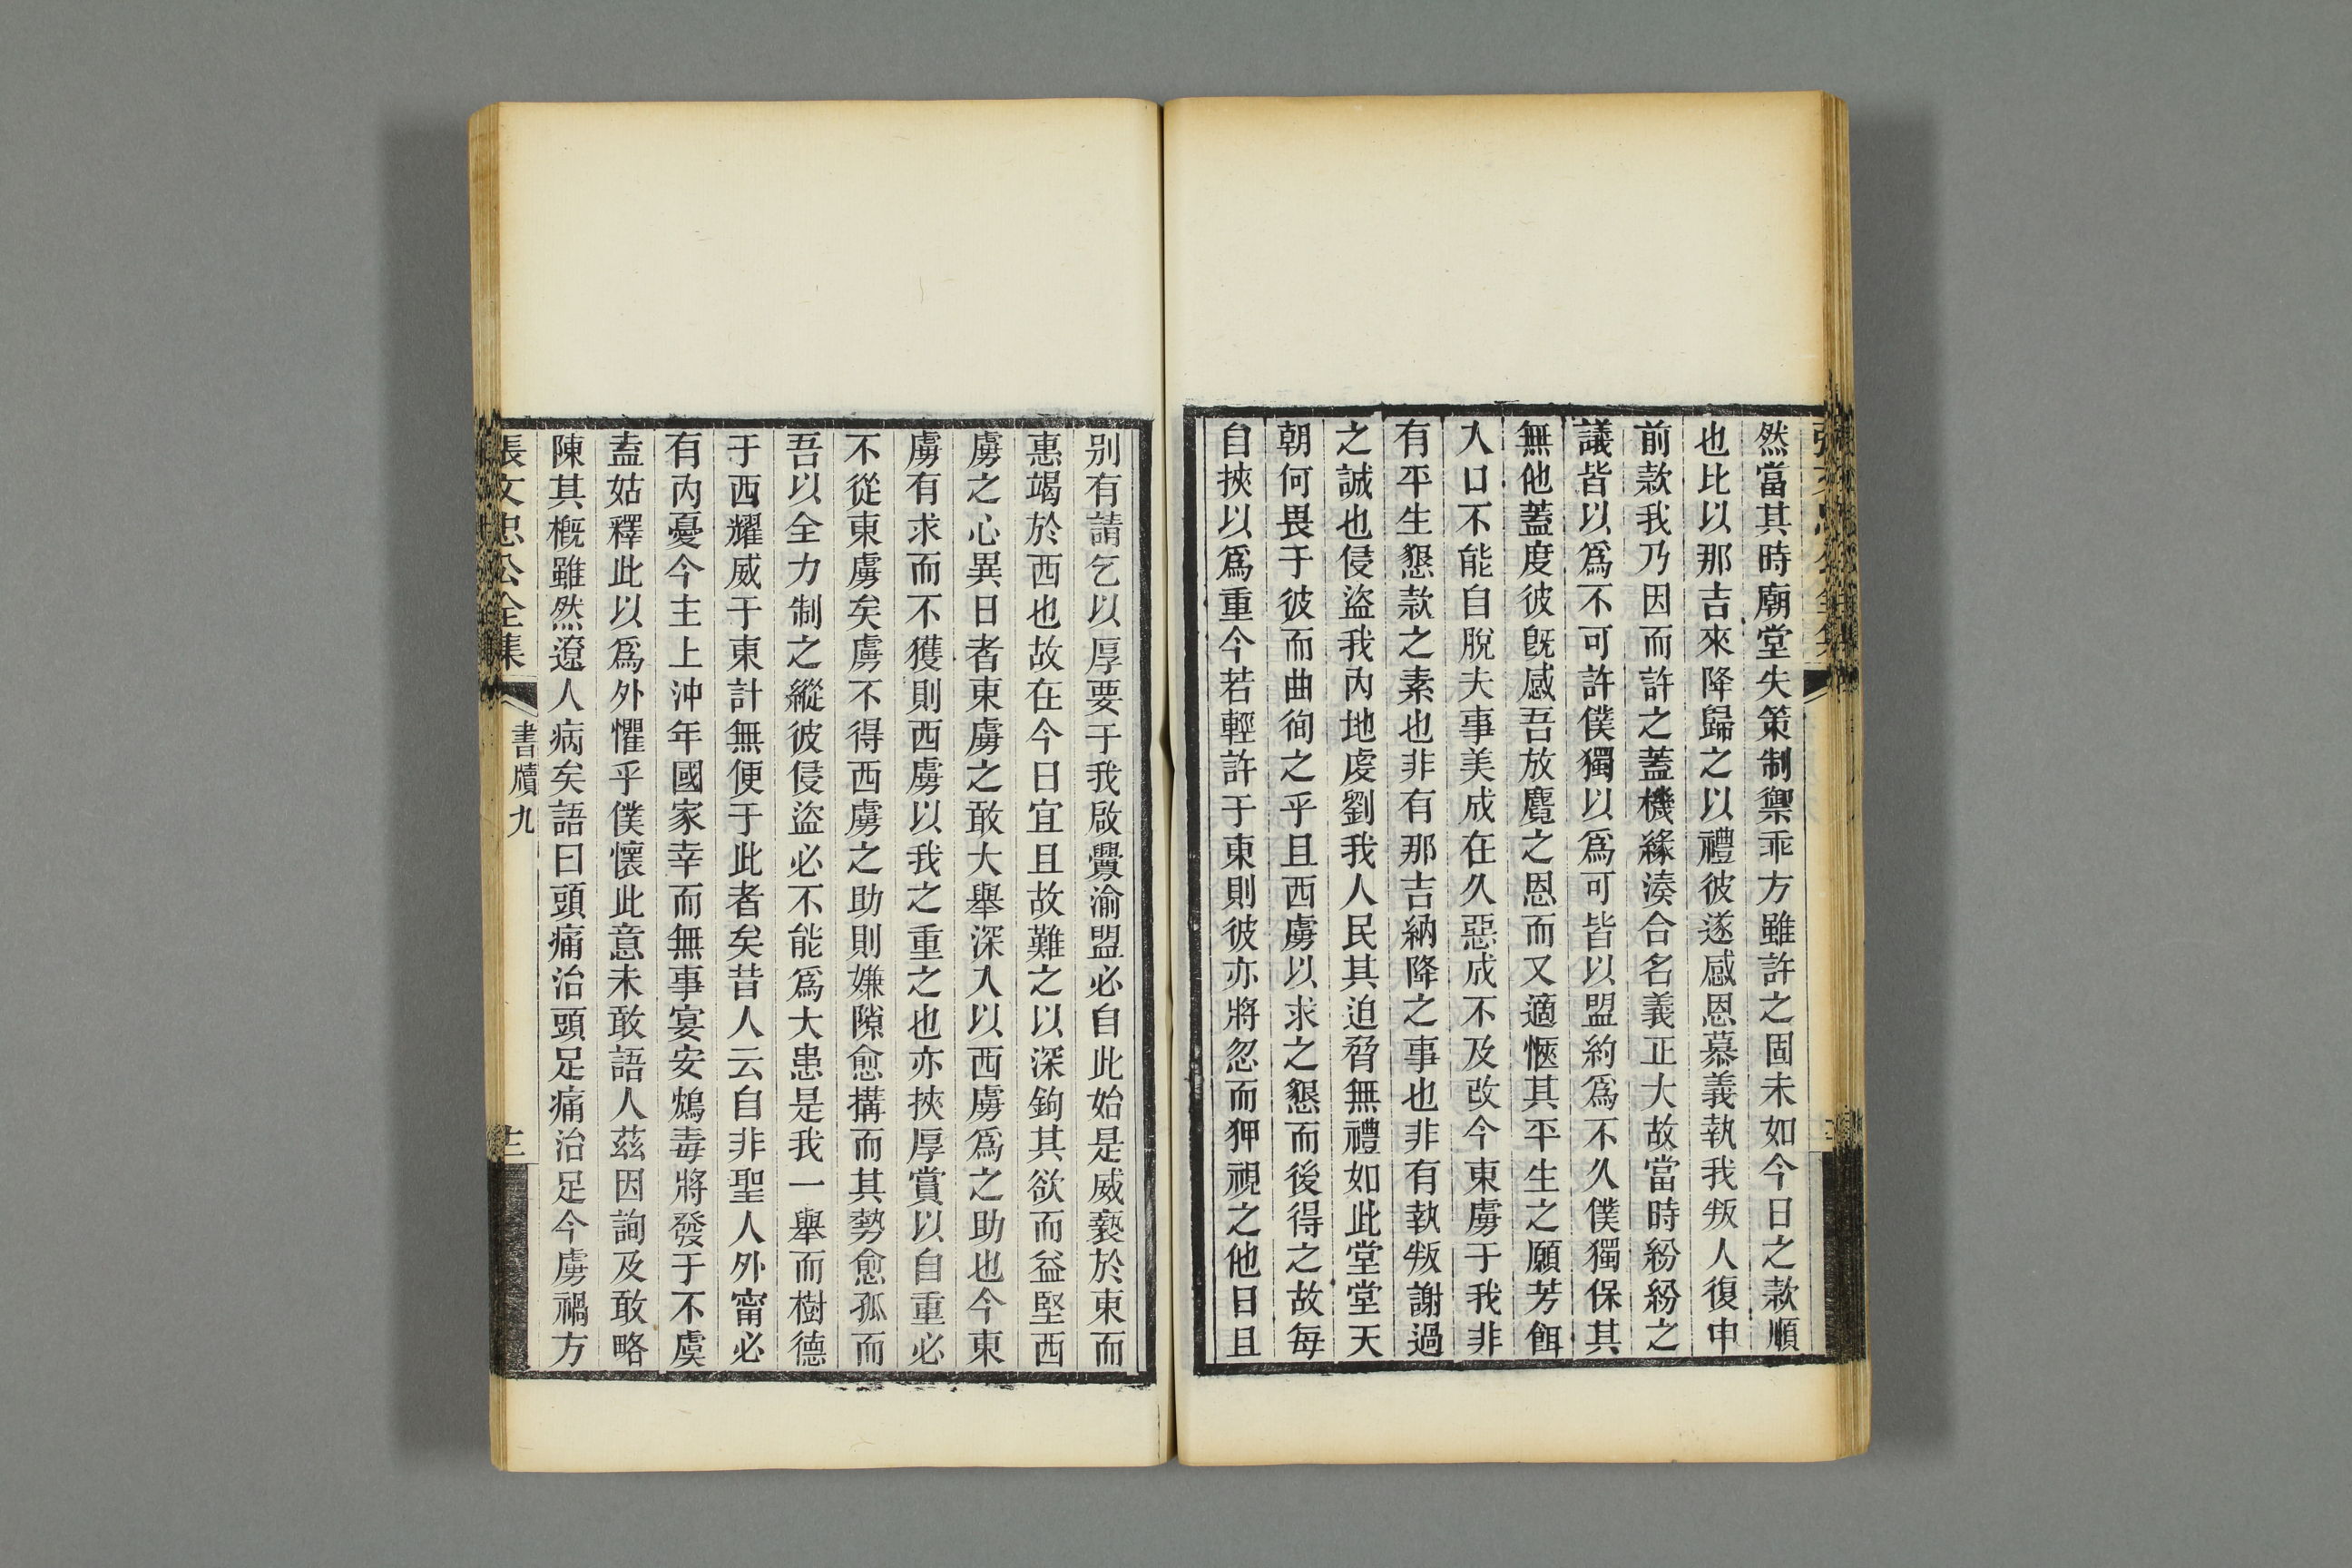 然當其時廟堂失策制禦乖方雖許之固未如今日之款順
也比以那吉來降歸之以禮彼遂感恩慕義執我叛人復申
前款我乃因而許之蓋機緣湊合名義正大故當時紛紛之
議皆以爲不可許僕獨以爲可皆以盟約爲不久僕獨保其
無他蓋度彼旣感吾放麑之恩而又適愜其平生之願芳餌
入口不能自脫夫事美成在久惡成不及改今東虜于我非
有平生懇款之素也非有那吉納降之事也非有執叛謝過
之誠也侵盜我內地虔劉我人民其迫脅無禮如此堂堂天
朝何畏于彼而曲徇之乎且西虜以求之懇而後得之故每
自挾以爲重今若輕許于東則彼亦將忽而狎視之他日且
别有請乞以厚要于我啟釁渝盟必自此始是威褻於東而
惠竭於西也故在今日宜且故難之以深鉤其欲而益堅西
虜之心異日者東虜之敢大舉深入以西虜爲之助也今東
虜有求而不獲則西虜以我之重之也亦挾厚賞以自重必
不從東虜矣虜不得西虜之助則嫌隙愈搆而其勢愈孤而
吾以全力制之縱彼侵盜必不能爲大患是我一舉而樹德
于西耀威于東計無便于此者矣昔人云自非聖人外甯必
有內憂今主上沖年國家幸而無事宴安鴆毒將發于不虞
盍姑釋此以爲外懼乎僕懷此意未敢語人茲因詢及敢略
陳其槪雖然遼人病矣語曰頭痛治頭足痛治足今虜禍方
張文忠公全集
書牘九